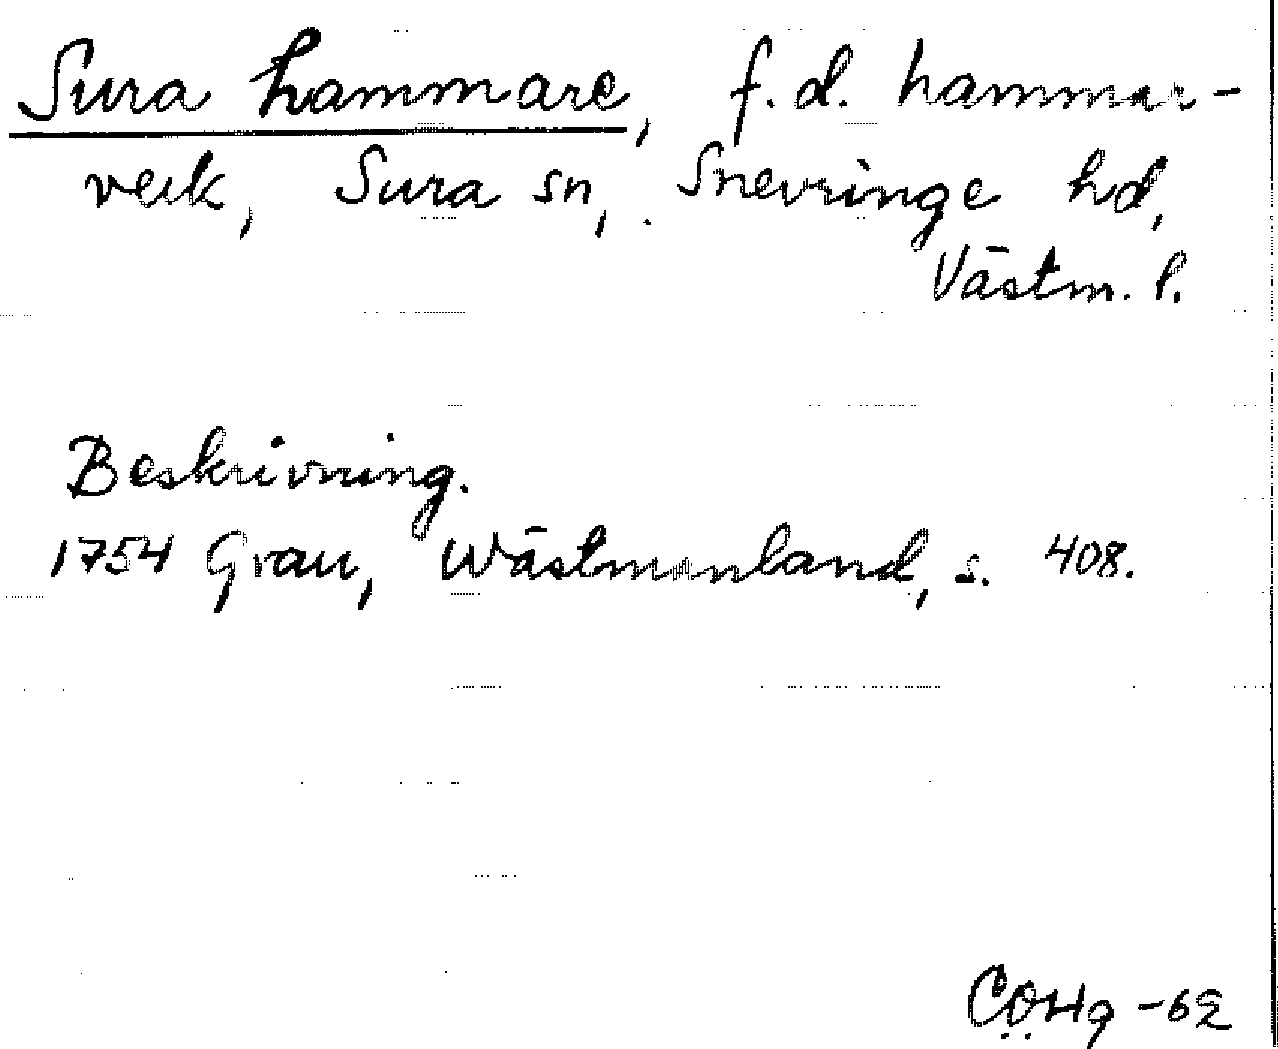 Sura hammare, f.d. hammar-
verk, Sura sn, Snevringe hd,
Västm. l.
Beskrivning.
1754 Grau, Wästmanland, s. 408.
CÖHg -62